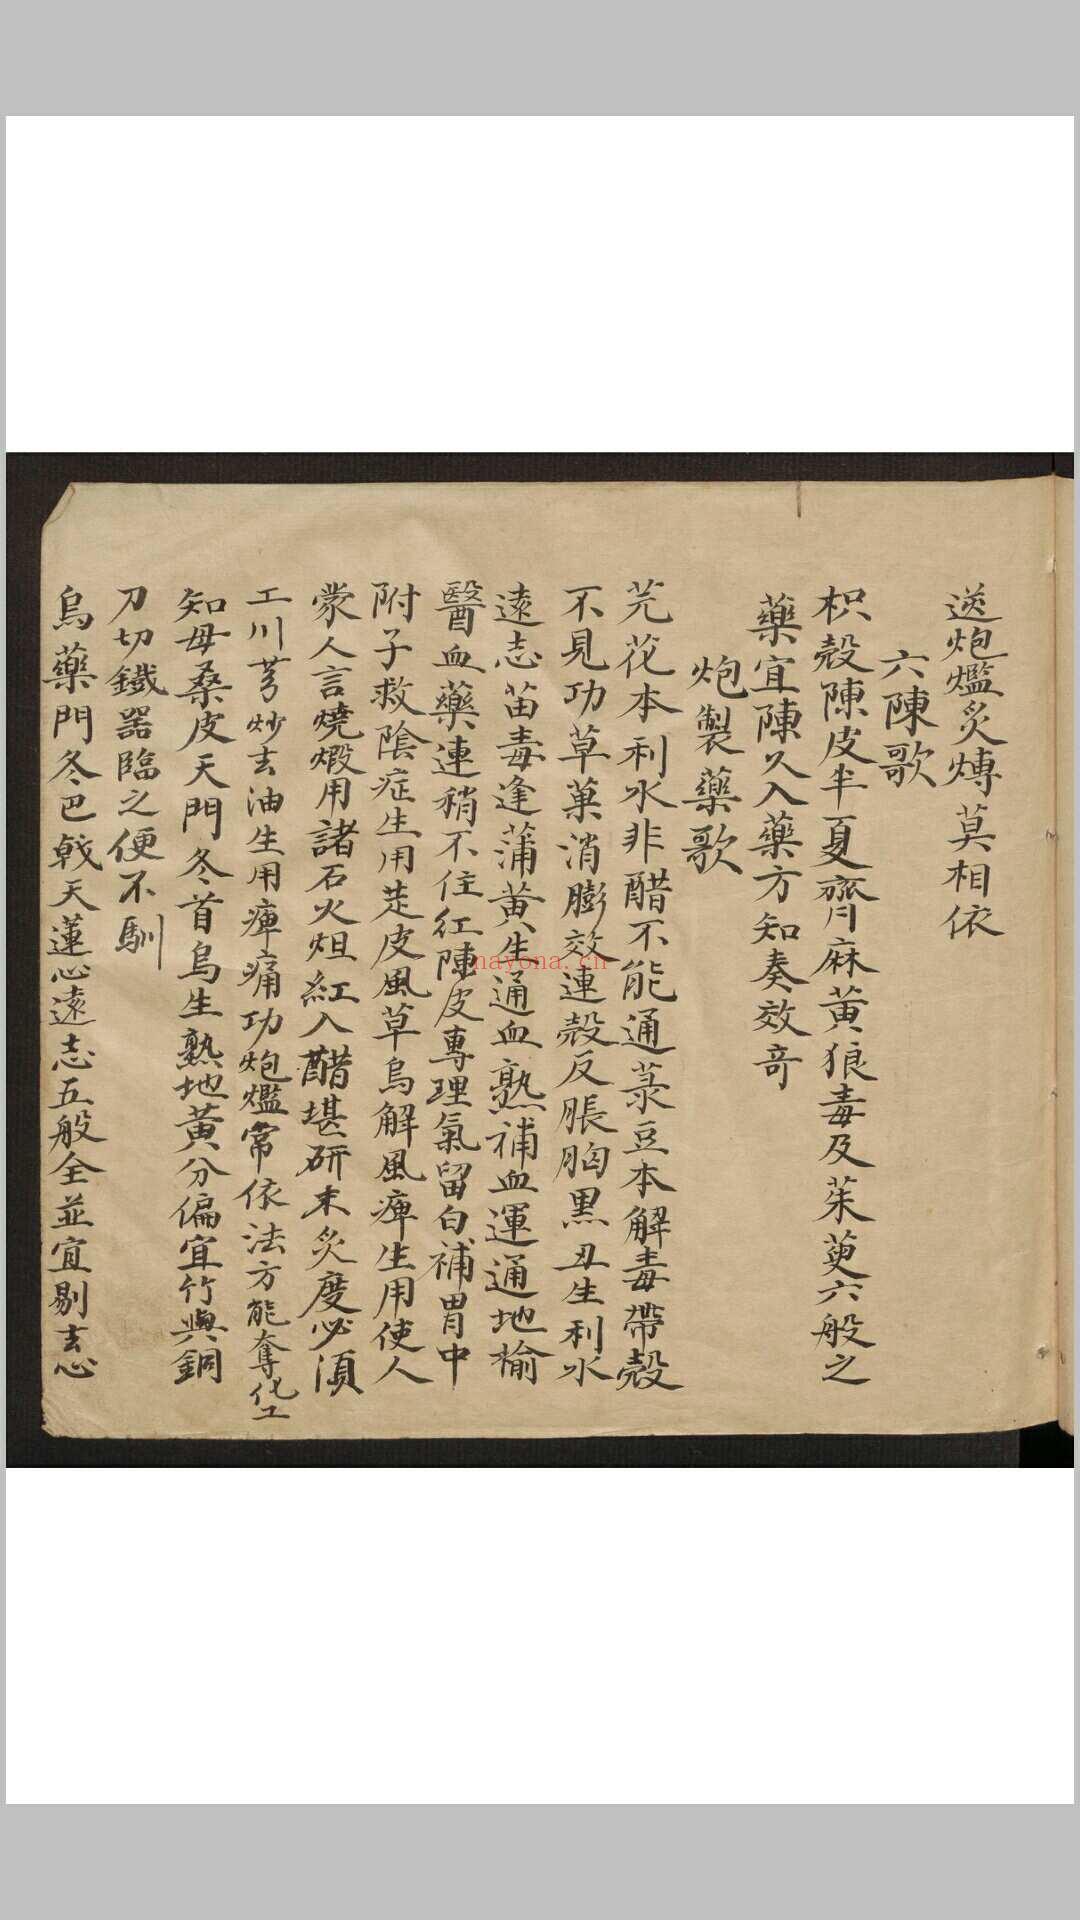 送炮爁炙煿莫相依
六陳歌
枳殼陳皮半夏齊麻黃狼毒及茱萸六般之
藥宜陳久入藥方知奏效奇
炮製藥歌
芫花本利水非醋不能通菉豆本解毒帶殼
不見功草菓消膨效連殼反脹胸黑丑生利水
遠志苗毒逢蒲黃生通血熟補血運通地榆
醫血藥連稍不住紅陳皮專理氣留白補胃中
附子救陰症生用走皮風草烏解風痺生用使人
蒙人言燒煆用諸石火炟紅入醋堪研末炙度必須
工川芎炒去油生用痺痛功炮爁常依法方能奪化工
知母桑皮天門冬首烏生熟地黃分偏宜竹與銅
刀切鐵器臨之便不馴
烏藥門冬巴戟天蓮心遠志五般全並宜剔去心
nayona.cn